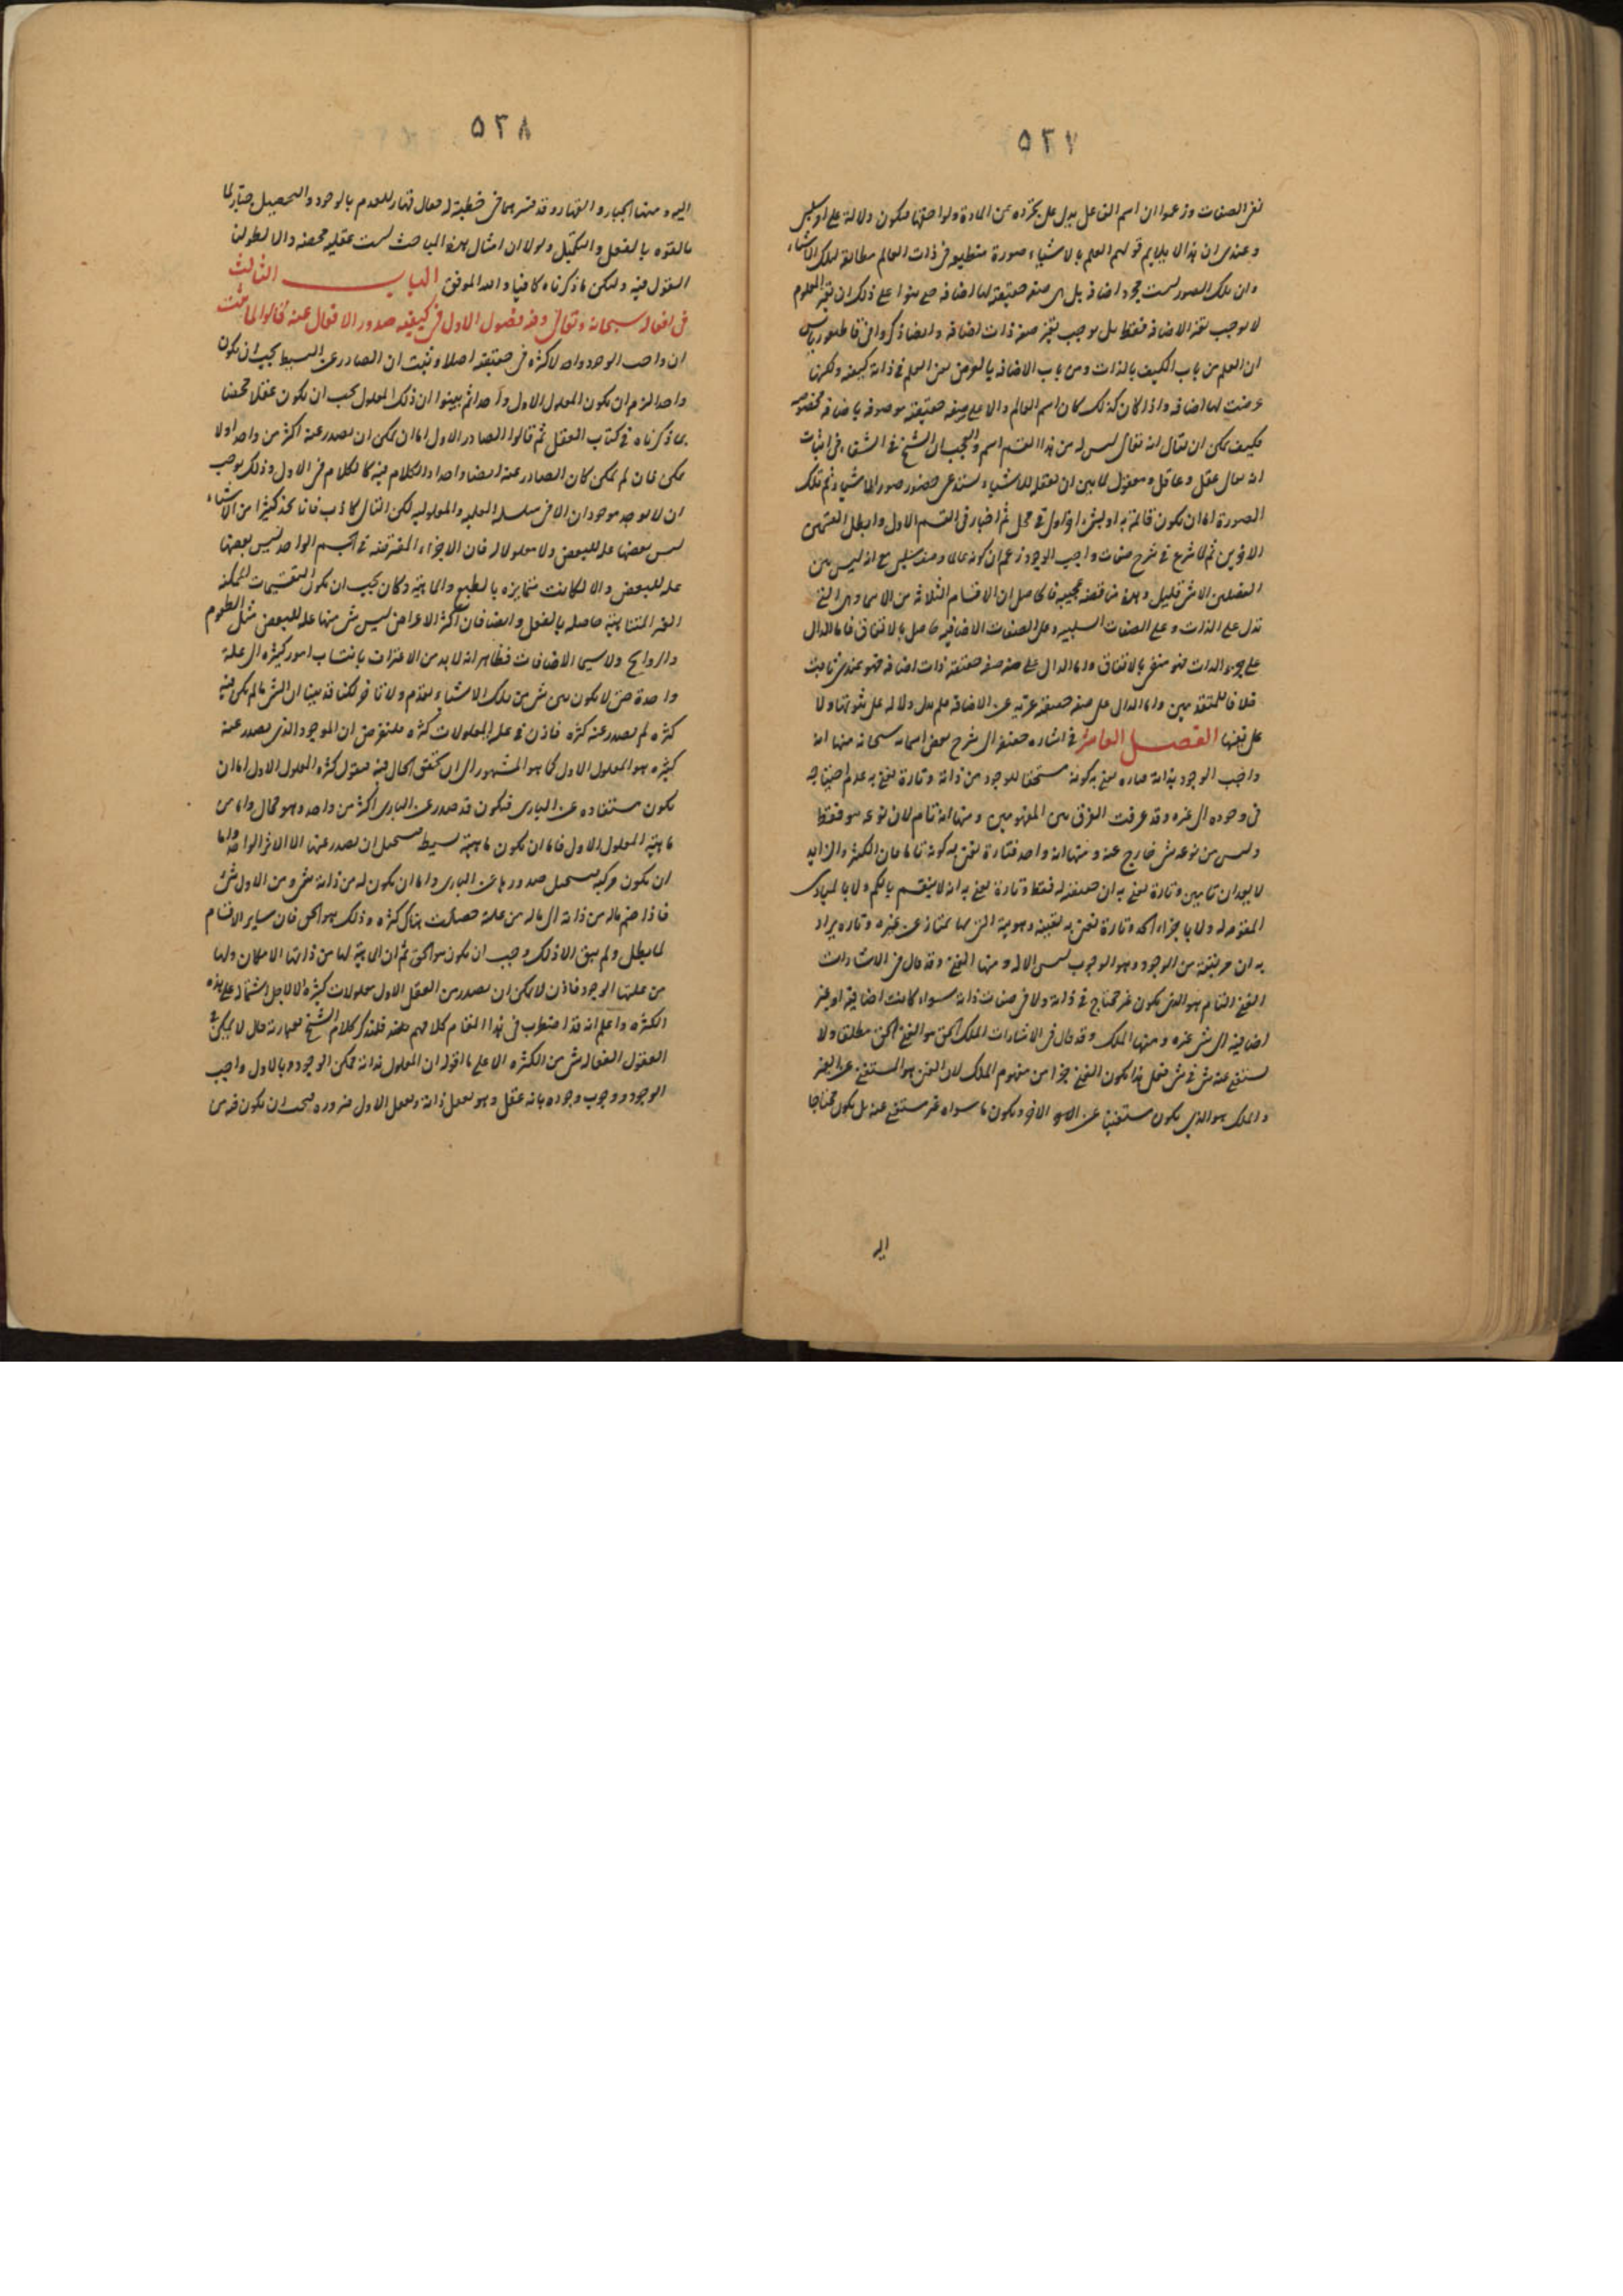 ٥٢٧
نفى الصفات وزعموا ان اسم الفاعل يدل على تجرده عن المادة ولواحقها فيكون دلالة على امر سلبى
وعندى ان هذا لا يلايم قولهم العلم بالاشياء صورة منطبعة فى ذات العالم مطابقة لتلك الاشياء
وان تلك الصور ليست مجرد اضافة بل هى صفة حقيقية لها اضافة حتى بنوا على ذلك ان تغير المعلوم
لا يوجب تغير الاضافة فقط بل يوجب تغير صفة ذات اضافة وايضا ذكروا فى قاطيغورياس
ان العلم من باب الكيف بالذات ومن باب الاضافة بالعرض يعنى العلم فى ذاته كيفية ولكنها
عرضت لها اضافة واذا كان كذلك كان اسم العالم دالا على صفة حقيقية موصوفة باضافة مخصوصة
فكيف يمكن ان يقال انه تعالى ليس له من هذا القسم اسم والعجب ان الشيخ فى الشفاء فى اثبات
انه تعالى عقل وعاقل ومعقول لما بين ان تعقله للاشياء يستدعى حضور صور الاشياء ثم تلك
الصورة اما ان تكون قائمة به او بشىء اخر او لا فى محل ثم اختار فى القسم الاول وابطل القسمين
الاخرين ثم لما شرع فى شرح صفات واجب الوجود زعم ان كونه عالما وصف سلبى مع انه ليس بين
الفصلين الا شىء قليل وهذه مناقضة عجيبة فالحاصل ان الاقسام الثلاثة من الاسامى وهى التى
تدل على الذات وعلى الصفات السلبية وعلى الصفات الاضافية حاصل بالاتفاق فاما الدال
على جزء الذات فهو منفى بالاتفاق واما الدال على صفة حقيقية ذات اضافة فهو عندى ثابت
خلافا للمتقدمين واما الدال على صفة حقيقية عرية عن الاضافة فلم يدل دلالة على ثبوتها ولا
على نفيها الفصل العاشر فى اشارة خفيفة الى شرح بعض اسمائه سبحانه منها انه
واجب الوجود بذاته فتارة نعنى به كونه مستحقا للوجود من ذاته وتارة نعنى به عدم احتياجه
فى وجوده الى غيره وقد عرفت الفرق بين المفهومين ومنها انه تام لان نوعه هو فقط
وليس من نوعه شىء خارج عنه ومنها انه واحد فتارة نعنى به كونه تاما فان الكثير والزايد
لا يعدان تامين وتارة نعنى به ان حقيقته له فقط وتارة نعنى به انه لا ينقسم بالكم ولا بالمبادى
المقومة له ولا باجزاء الحد وتارة نعنى به تعينه وهويته التى بها يمتاز عن غيره وتارة يراد
به ان مرتبته من الوجود وهو الوجوب ليس الا له ومنها الغنى وقد قال فى الاشارات
الغنى التام هو الذى يكون غير محتاج فى ذاته ولا فى صفات ذاته سواء كانت اضافية او غير
اضافية الى شىء غيره ومنها الملك وقد قال فى الاشارات الملك الحق هو الغنى الحق مطلقا ولا
يستغنى عنه شىء فى شىء فعلى هذا يكون الغنى جزءا من مفهوم الملك لان الغنى هو المستغنى عن الغير
والملك هو الذى يكون مستغنيا عن الاخر ويكون ما سواه غير مستغنى عنه بل يكون محتاجا
اليه
٥٢٨
اليه ومنها الجبار والقهار وقد فسرهما فى خطبة له فقال قهار للعدم بالوجود والتحصيل جبار لما
بالقوة بالفعل والتكميل ولولا ان امثال هذه المباحث ليست عقلية محضة والا لطولنا
القول فيه ولكن ما ذكرناه كافيا والله الموفق الباب الثالث
فى افعاله سبحانه وتعالى وفيه فصول الاول فى كيفية صدور الافعال عنه قالوا لما ثبت
ان واجب الوجود واحد لا كثرة فى حقيقته اصلا وثبت ان الصادر عن البسيط يجب ان يكون
واحدا لزم ان يكون المعلول الاول واحدا ثم بينوا ان ذلك المعلول يجب ان يكون عقلا محضا
بما ذكرناه فى كتاب العقل ثم قالوا الصادر الاول اما ان يمكن ان يصدر عنه اكثر من واحد او لا
يمكن فان لم يمكن كان الصادر عنه ايضا واحدا والكلام فيه كالكلام فى الاول وذلك يوجب
ان لا يوجد موجودان الا فى سلسلة العلية والمعلولية لكن التالى كاذب فانا نجد كثيرا من الاشياء
ليس بعضها علة للبعض ولا معلولا له فان الاجزاء المفترضة فى الجسم الواحد ليس بعضها
علة للبعض والا لكانت متمايزة بالطبع والماهية وكان يجب ان تكون التقسيمات الممكنة
الغير المتناهية حاصلة بالفعل وايضا فان اكثر الاعراض ليس شىء منها علة للبعض مثل الطعوم
والروايح ولا سيما الاضافات فظاهر انه لا بد من الاعتراف بانتساب امور كثيرة الى علة
واحدة حتى لا يكون بين شىء من تلك الاشياء تقدم ولا تاخر لكنا قد بينا ان الشىء ما لم يكن فيه
كثرة لم يصدر عنه كثرة فاذن فى علة المعلولات كثرة فلنفرض ان الموجود الذى يصدر عنه
كثيرة هو المعلول الاول كما هو المشهور الى ان نحقق الحال فيه فنقول كثرة المعلول الاول اما ان
يكون مستفادة عن البارى فيكون قد صدر عن البارى اكثر من واحد وهو محال واما من
ماهية المعلول الاول فاما ان يكون ماهيته بسيطة فيستحيل ان يصدر عنها الا الاثر الواحد واما
ان يكون مركبة فيستحيل صدورها عن البارى واما ان يكون له من ذاته شىء ومن الاول شىء
فاذا ضم ما له من ذاته الى ما له من علته حصلت هناك كثرة وذلك هو الحق فان ساير الاقسام
لما بطل ولم يبق الا ذلك وجب ان يكون هو الحق ثم ان الماهية لها من ذاتها الامكان ولها
من علتها الوجود فاذن لا يمكن ان يصدر من العقل الاول معلولات كثيرة الا لاجل اشتماله على هذه
الكثرة واعلم انه قد اضطرب فى هذا المقام كلامهم فلنذكر كلام الشيخ بعبارته قال لا يمكن فى
العقول الفعالة شىء من الكثرة الا على ما اقوله ان المعلول بذاته ممكن الوجود وبالاول واجب
الوجود ووجوب وجوده بانه عقل وهو يعقل ذاته ويعقل الاول ضرورة فيجب ان يكون فيه من